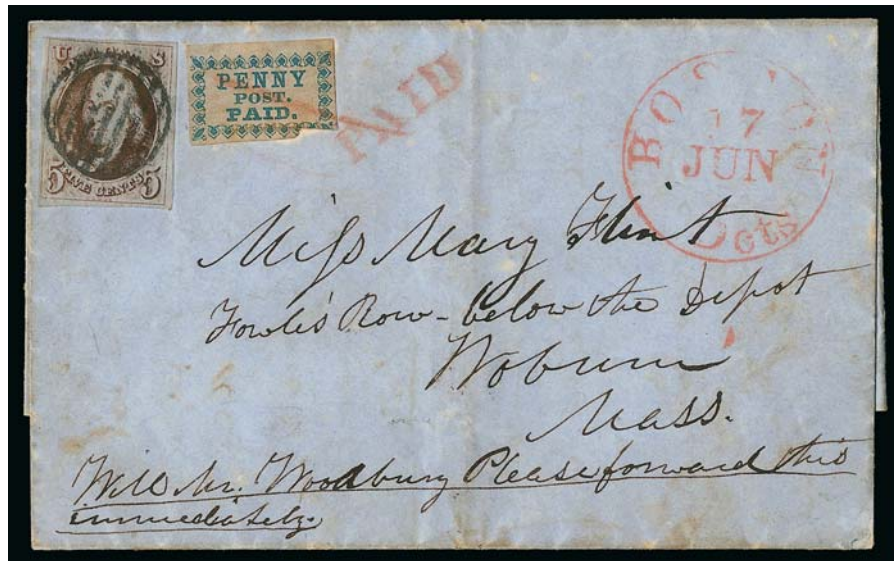 U S
5 FIVE CENTS 5
PENNY
POST.
PAID.
PAID
BOSTON
17
JUN
5 cts
Miss Mary Flint
Fowle's Row - below the Depot
Woburn
Mass.
Will Mr. Woodbury Please forward this
immediately.